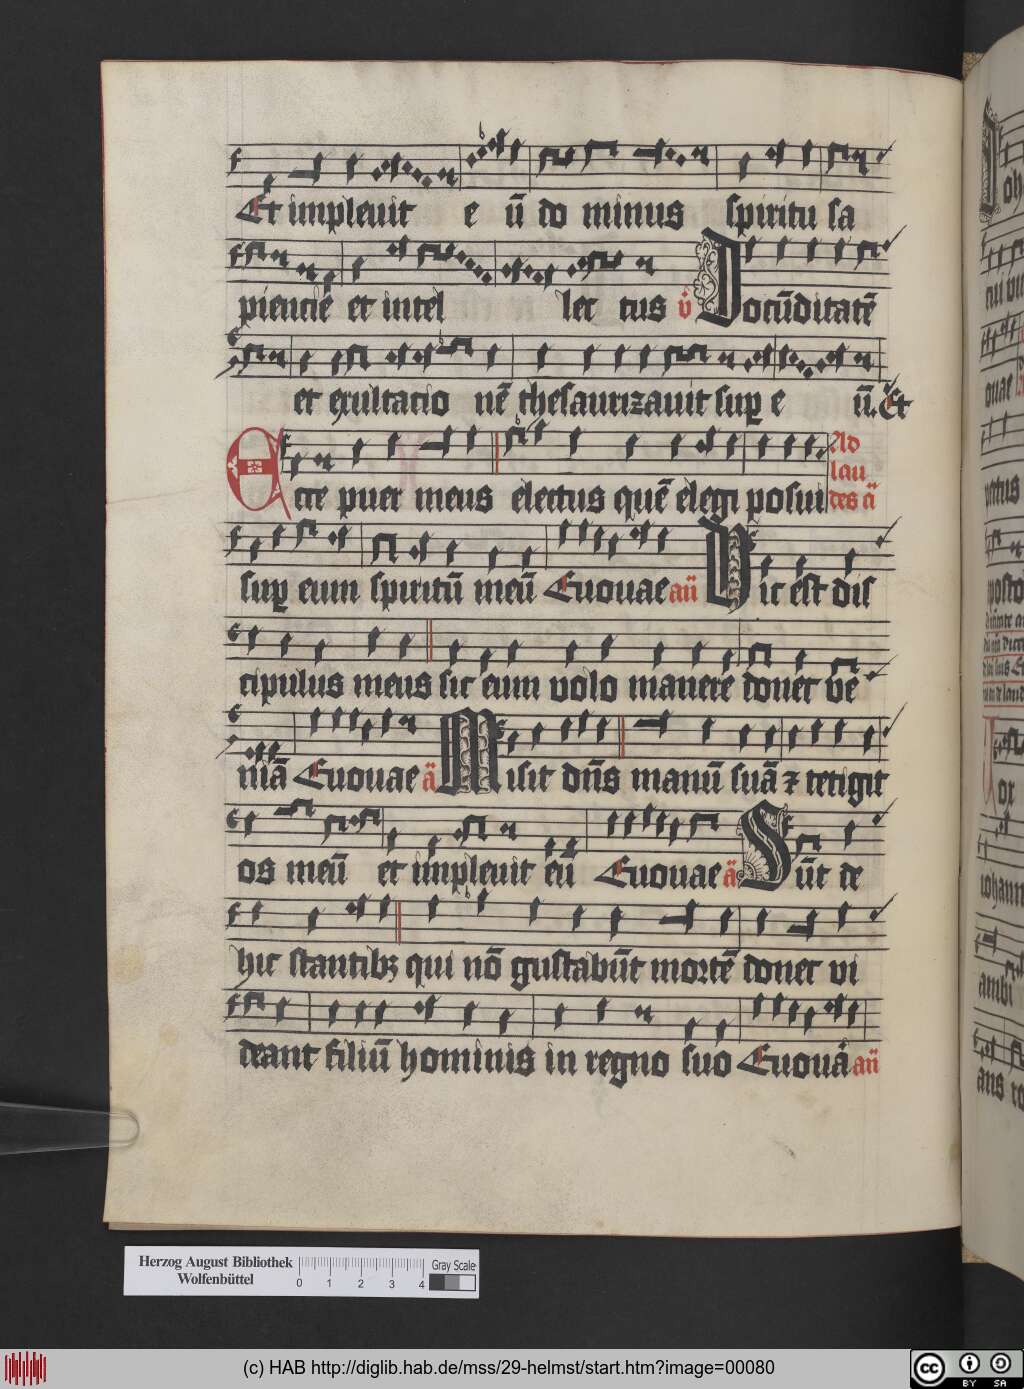 Et impleuit e ū do minus spiritu sa
piencie et intel lec tus v̊ Iocūditatē
et exultacio nē thesaurizauit sup e ū. Et
Ecce puer meus electus quē elegi posui
Ad
lau
des ā
sup eum spiritū meū Euouae añ Hic est dis
cipulus meus sic eum volo manere donec ve
niā Euouae ā Misit dñs manū suā ⁊ tetigit
os meū et impleuit eū Euouae ā Sūt de
hic stantibꝫ qui nō gustabūt mortē donec vi
deant filiū hominis in regno suo Euoua añ
Herzog August Bibliothek
Wolfenbüttel
0 1 2 3 4
Gray Scale
(c) HAB http://diglib.hab.de/mss/29-helmst/start.htm?image=00080
cc BY SA